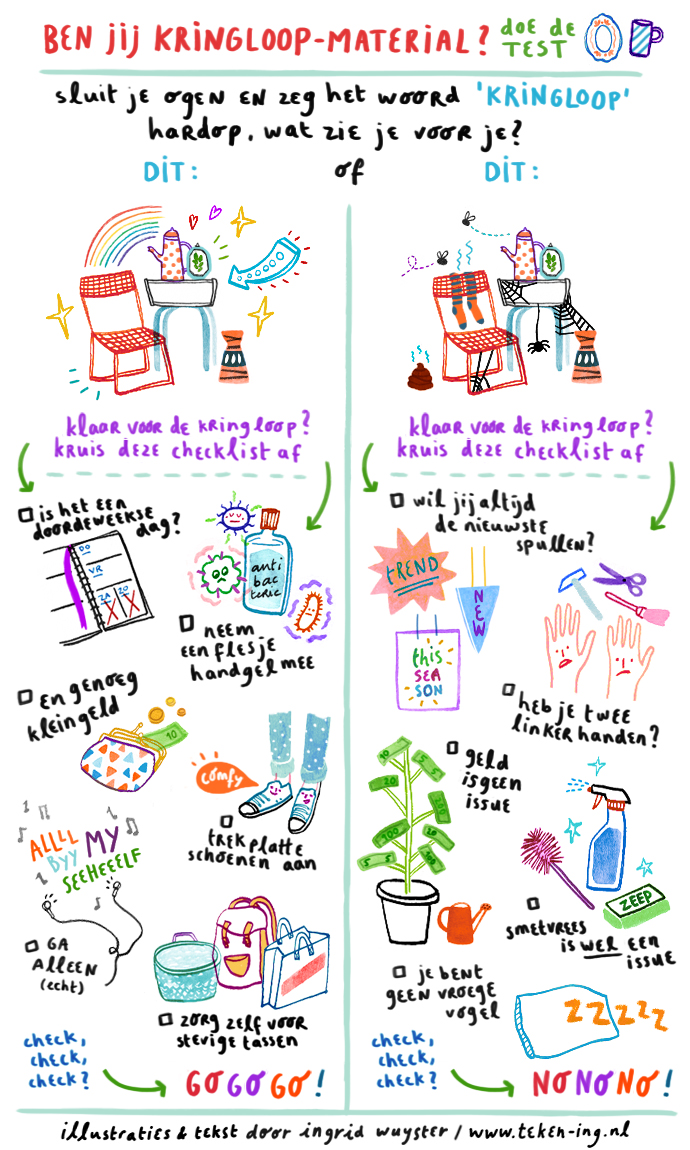 BEN JIJ KRINGLOOP-MATERIAL? DOE DE TEST
sluit je ogen en zeg het woord 'KRINGLOOP'
hardop, wat zie je voor je?
DIT: of DIT:
klaar voor de kringloop?
kruis deze checklist af
is het een
doordeweekse
dag?
DO
VR
ZA ZO
anti
bac
terie
neem
een flesje
handgel mee
en genoeg
kleingeld
10
comfy
trek platte
schoenen aan
ALLLL
BYY MY
SEEHEEELF
GA
ALLEEN
(echt)
zorg zelf voor
stevige tassen
check,
check,
check?
GO GO GO!
klaar voor de kringloop?
kruis deze checklist af
wil jij altijd
de nieuwste
spullen?
TREND
NEW
this
SEA
SON
heb je twee
linkerhanden?
geld
is geen
issue
10
5 5
20
100
20
5 5
ZEEP
smetvrees
is wel een
issue
je bent
geen vroege
vogel
ZZZZZ
check,
check,
check?
NO NO NO!
illustraties & tekst door ingrid wuyster / www.teken-ing.nl